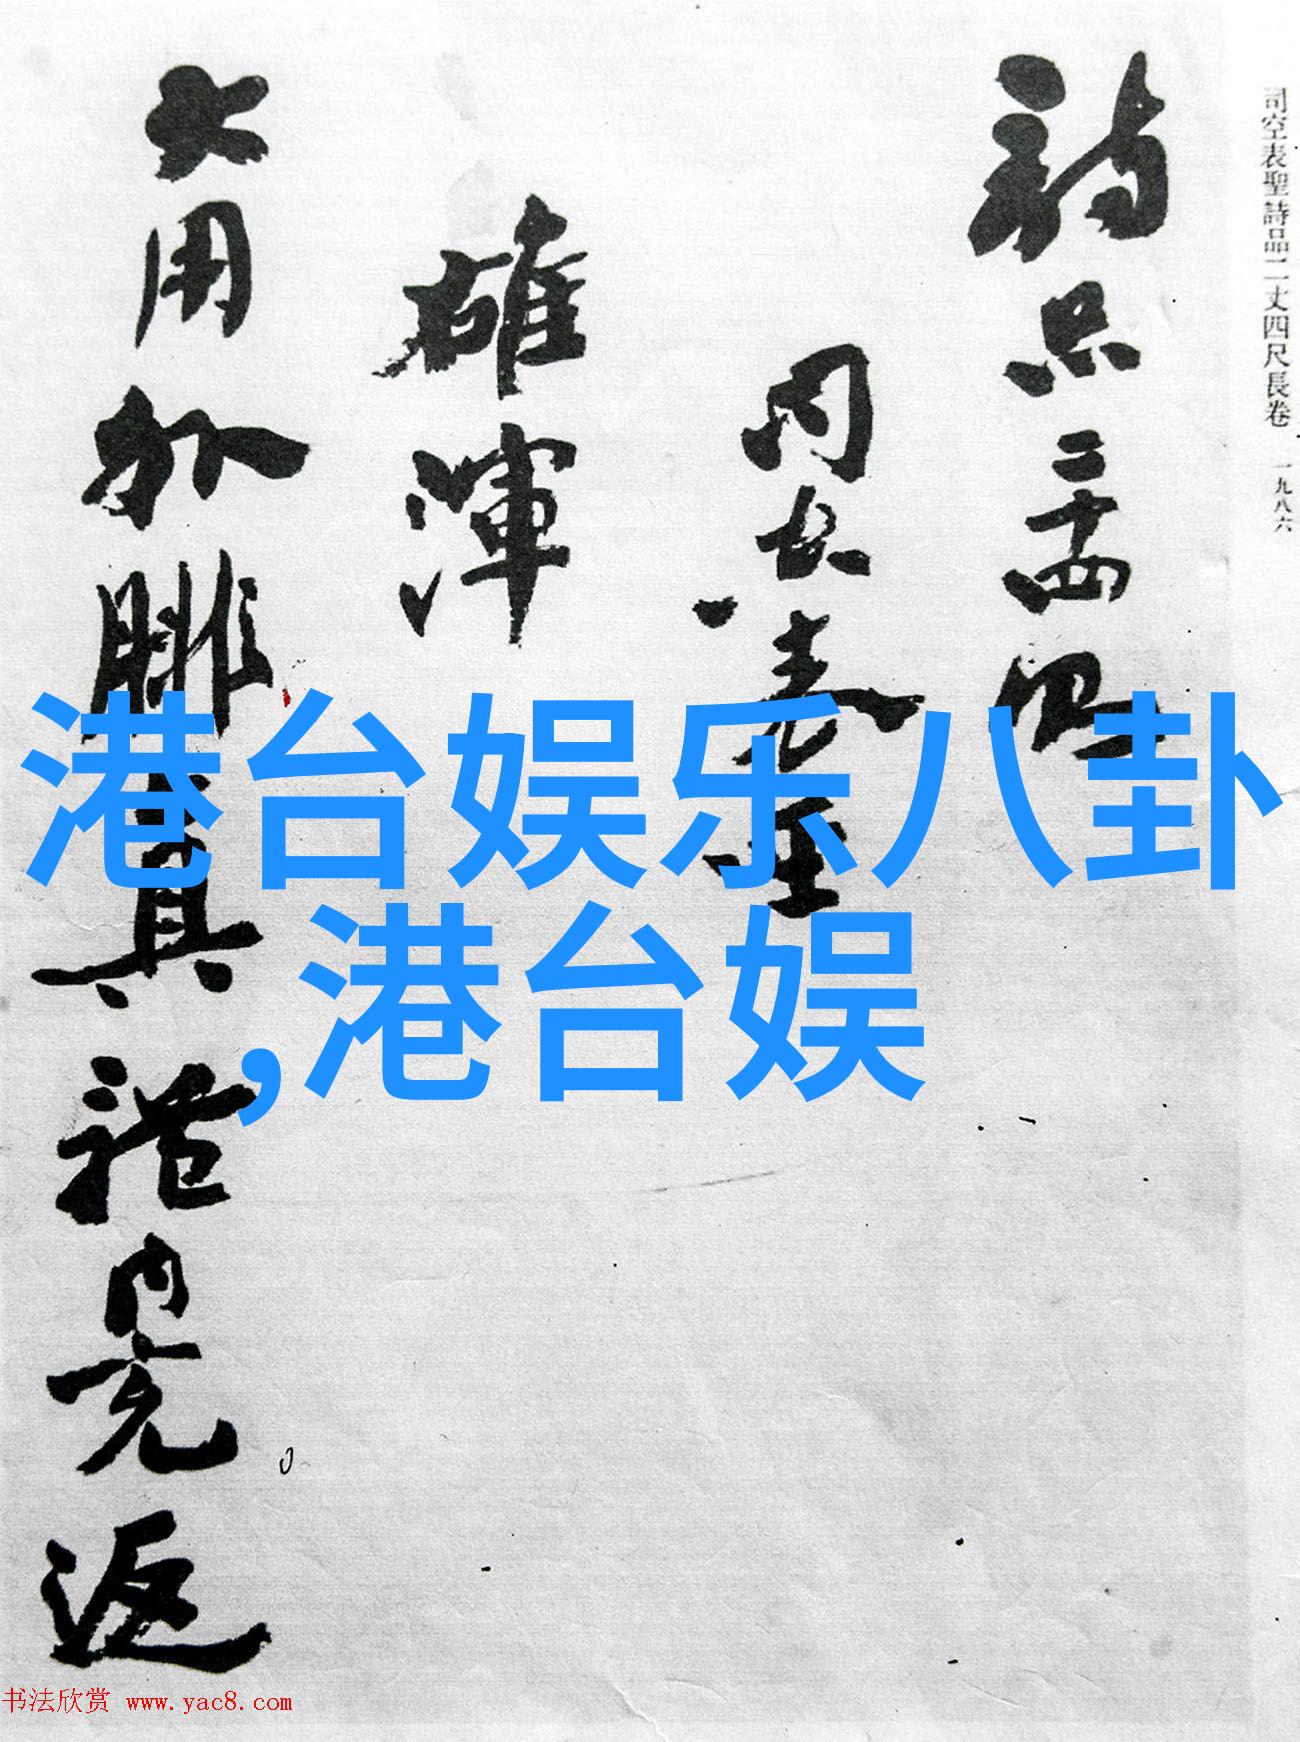 司空表聖詩品二丈四尺長卷 一九八六
詩品二十四則
司空表聖
雄渾
大用外腓真體內充返
港台娱乐八卦
,港台娱
书法欣赏 www.yac8.com